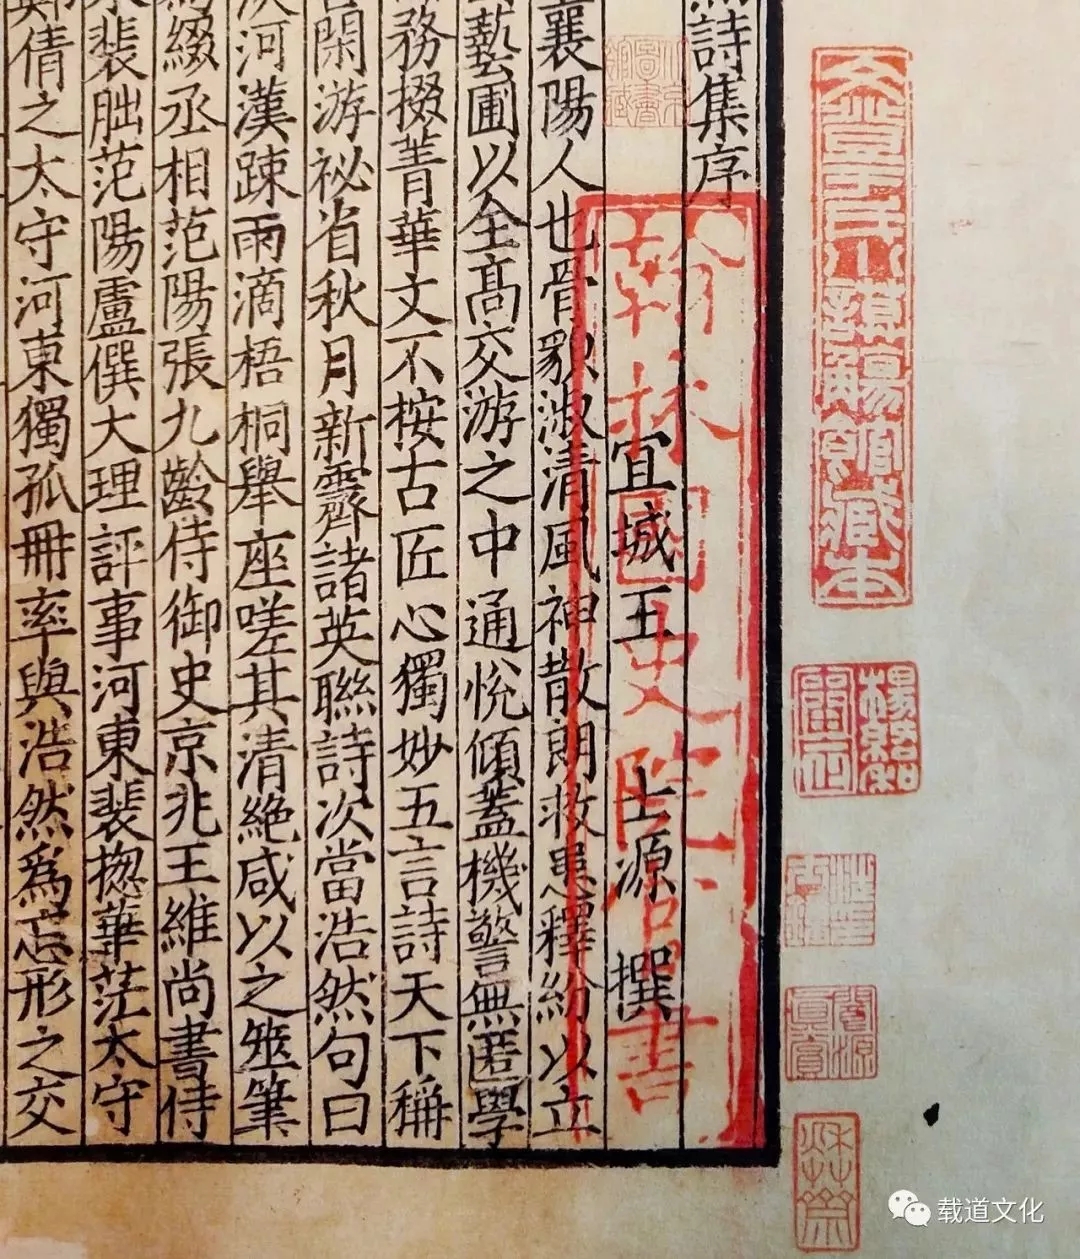 詩集序
宜城王 士源 撰
襄陽人也骨貌淑清風神散朗救患釋紛以立
藝圃以全髙交游之中通悅傾蓋機警無匿學
務掇菁華文不按古匠心獨妙五言詩天下稱
閑游祕省秋月新霽諸英聯詩次當浩然句曰
河漢踈雨滴梧桐舉座嗟其清絶咸以之筆
綴丞相范陽張九齡侍御史京兆王維尚書侍
裴朏范陽盧僎大理評事河東裴揔華茫太守
倩之太守河東獨孤冊率與浩然爲忘形之交
翰林國史院官書
楊紹和
载道文化